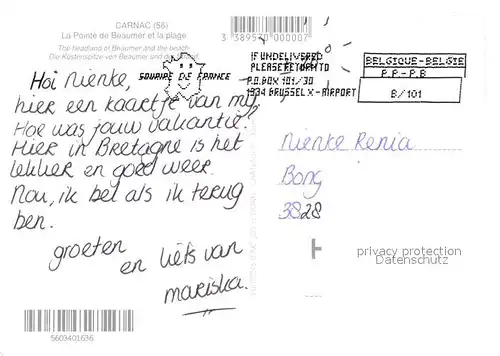 CARNAC (56)
La Pointe de Beaumer et la plage
The headland of Beaumer and the beach
Die Küstenspitze von Beaumer und der
3 389520 000007
SOURIRE DE FRANCE
IF UNDELIVERED
PLEASE RETURN TO
P.O.BOX 101/30
1934 BRUSSEL X-AIRPORT
BELGIQUE-BELGIE
P.P.-P.B
B/101
Hoi Nienke,
hier een kaartje van mij.
Hoe was jouw vakantie?
Hier in Bretagne is het
lekker en goed weer.
Nou, ik bel als ik terug
ben.
groeten
en liefs van
mariska.
Nienke Renia
Bong
3828
privacy protection
Datenschutz
5603401636